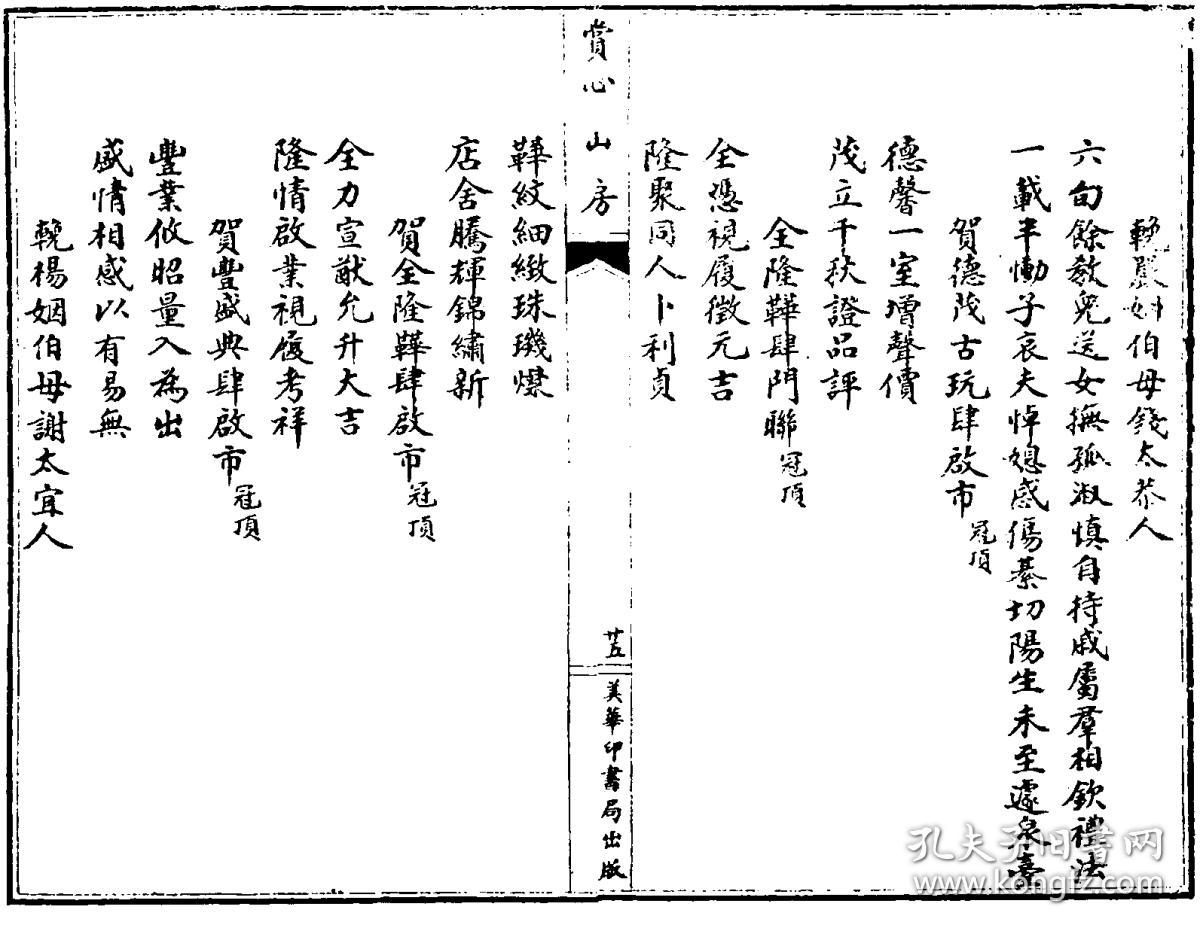 輓嚴姻伯母錢太恭人
六旬餘教兒送女撫孤淑慎自持戚屬羣相欽禮法
一載半慟子哀夫悼媳感傷綦切陽生未至遽泉臺
賀德茂古玩肆啟市冠頂
德馨一室增聲價
茂立千秋證品評
全隆鞾肆門聯冠頂
全憑視履徵元吉
隆聚同人卜利貞
賞心山房
廿五
美華印書局出版
鞾紋細緻珠璣燦
店舍騰輝錦繡新
賀全隆鞾肆啟市冠頂
全力宣猷允升大吉
隆情啟業視履考祥
賀豐盛典肆啟市冠頂
豐業攸昭量入為出
盛情相感以有易無
輓楊姻伯母謝太宜人
孔夫子旧書网
www.kongfz.com